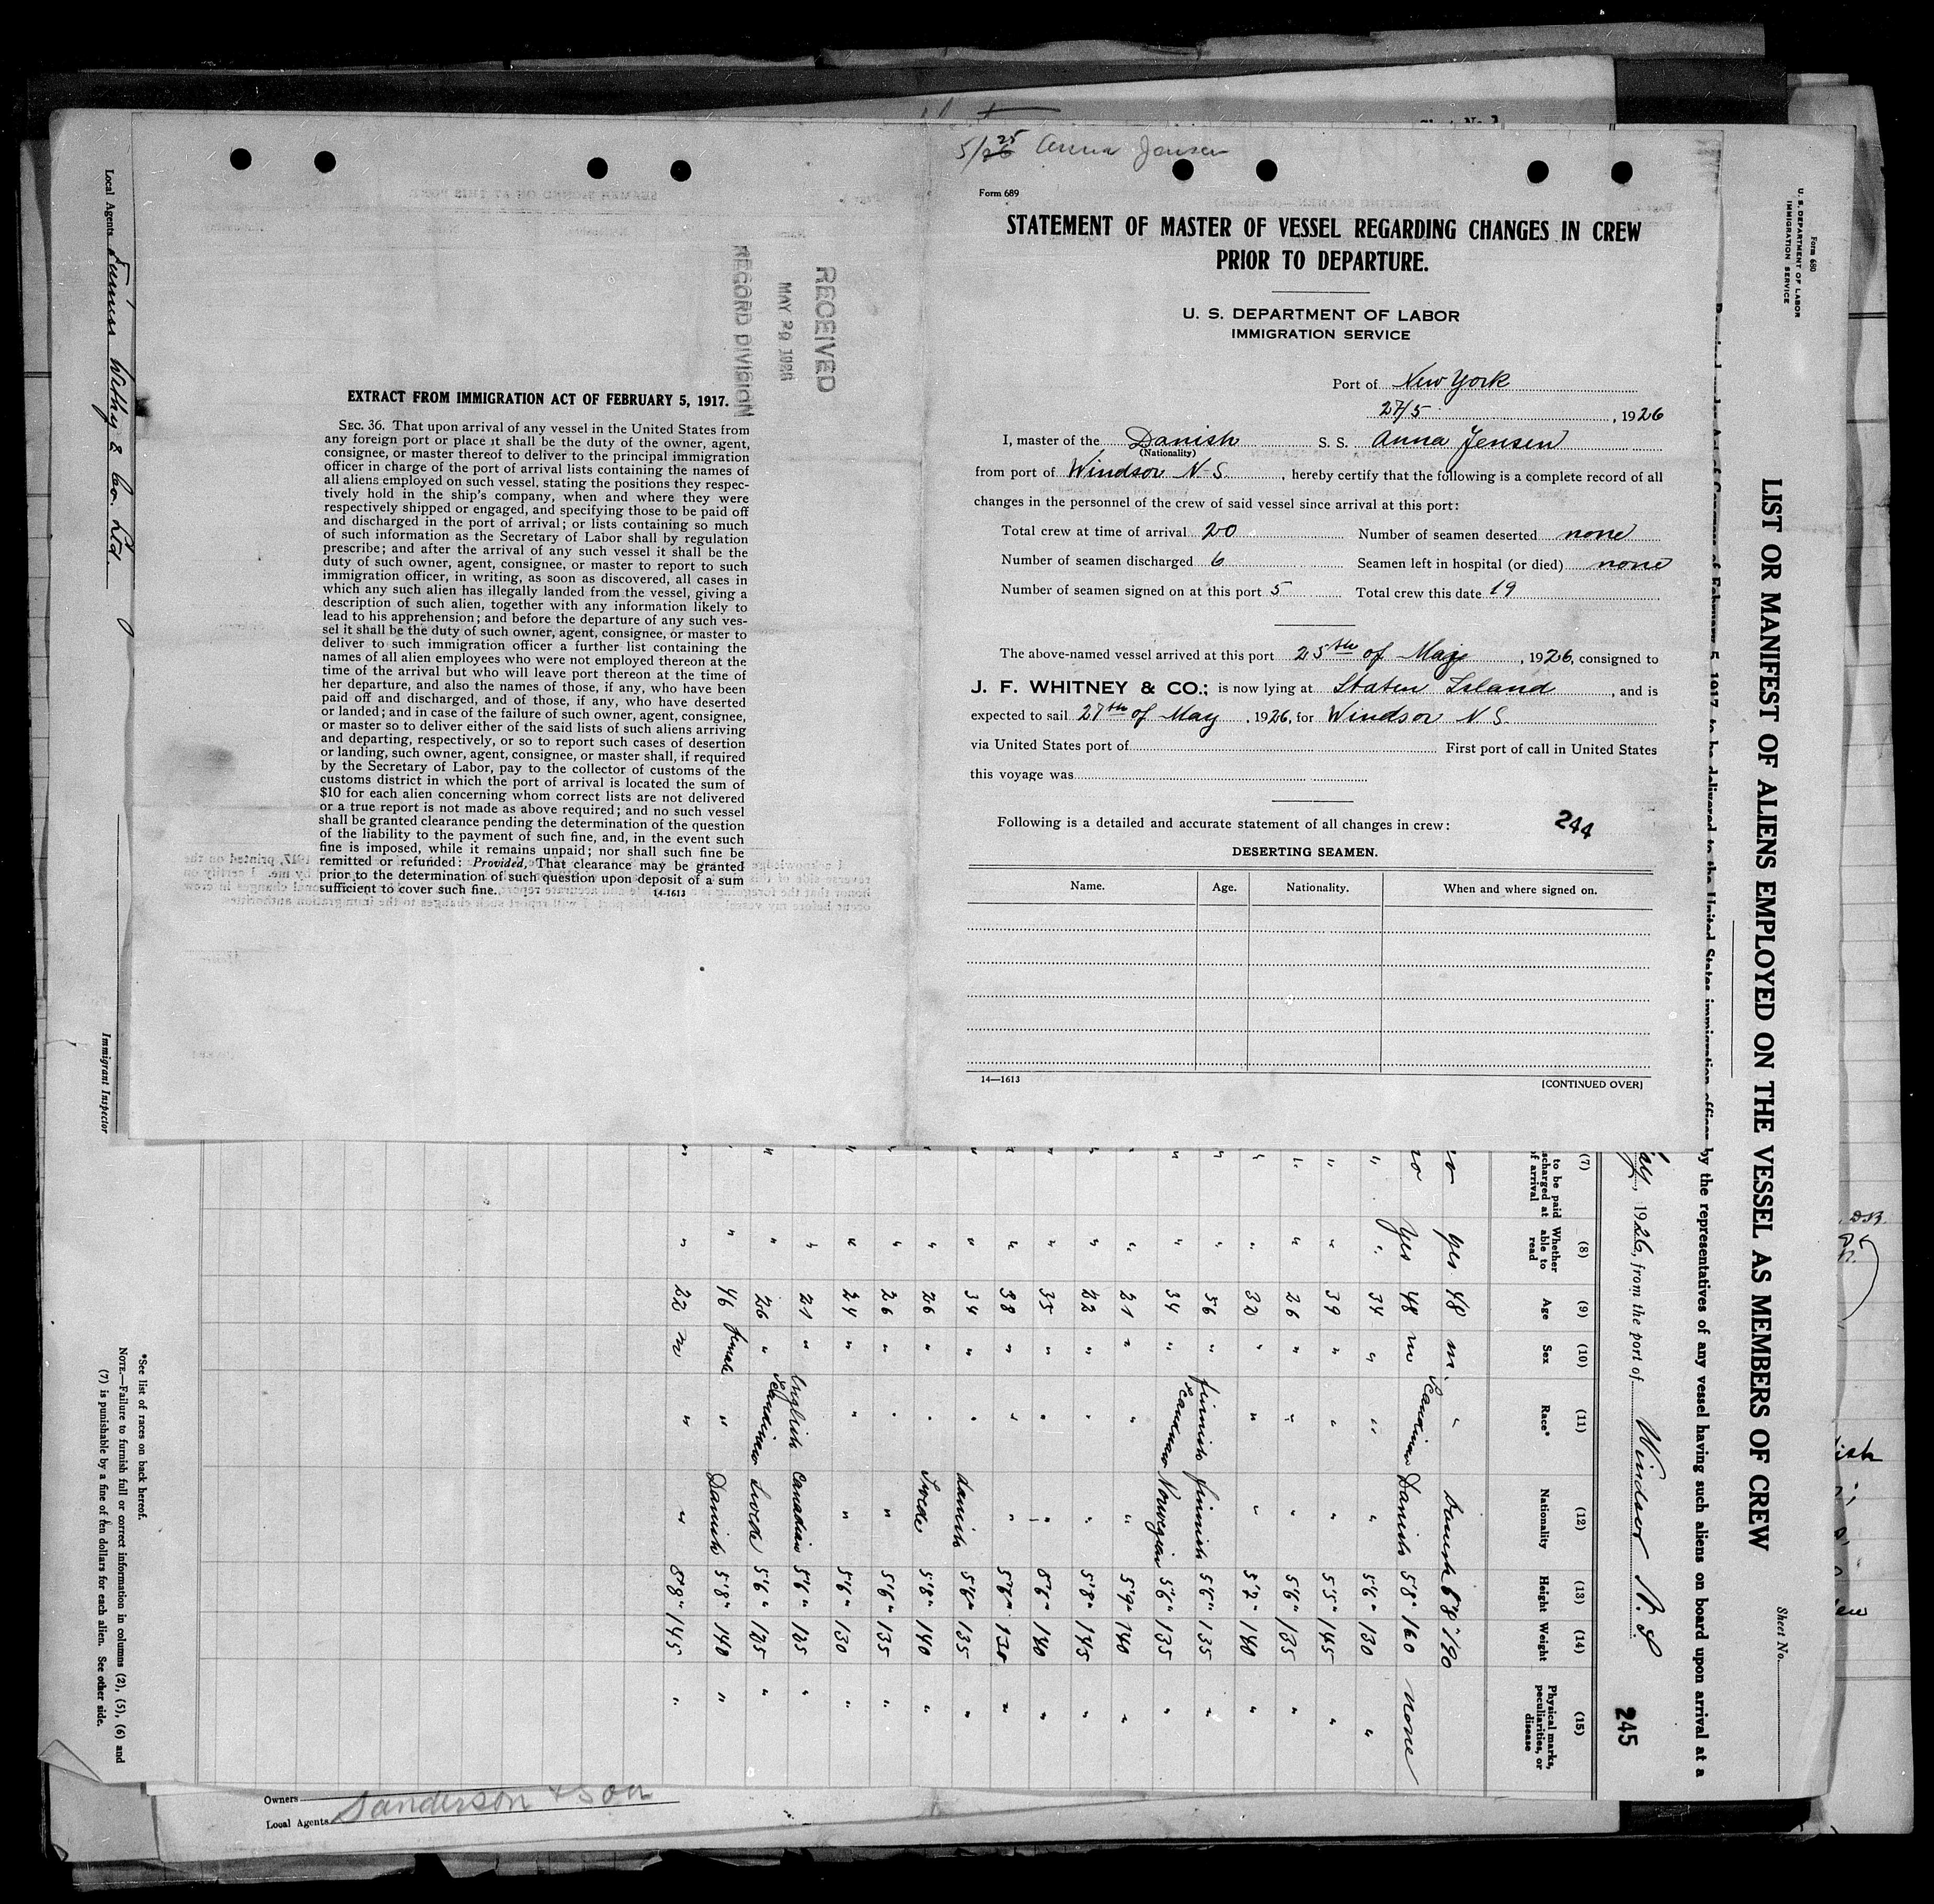 5/26 25 Anna Jensen
Form 689
STATEMENT OF MASTER OF VESSEL REGARDING CHANGES IN CREW
PRIOR TO DEPARTURE.
U. S. DEPARTMENT OF LABOR
IMMIGRATION SERVICE
Port of New York
27/5, 1926
I, master of the Danish S. S. Anna Jensen
(Nationality)
from port of Windsor N-S., hereby certify that the following is a complete record of all
changes in the personnel of the crew of said vessel since arrival at this port:
Total crew at time of arrival 20 Number of seamen deserted none
Number of seamen discharged 6 Seamen left in hospital (or died) none
Number of seamen signed on at this port 5 Total crew this date 19
The above-named vessel arrived at this port 25th of May, 1926, consigned to
J. F. WHITNEY & CO.; is now lying at Staten Island, and is
expected to sail 27th of May, 1926, for Windsor N S.
via United States port of First port of call in United States
this voyage was
Following is a detailed and accurate statement of all changes in crew: 244
DESERTING SEAMEN.
Name. Age. Nationality. When and where signed on.
14—1613 [CONTINUED OVER]
RECEIVED
MAY 29 1926
RECORD DIVISION
EXTRACT FROM IMMIGRATION ACT OF FEBRUARY 5, 1917.
SEC. 36. That upon arrival of any vessel in the United States from
any foreign port or place it shall be the duty of the owner, agent,
consignee, or master thereof to deliver to the principal immigration
officer in charge of the port of arrival lists containing the names of
all aliens employed on such vessel, stating the positions they respec-
tively hold in the ship's company, when and where they were
respectively shipped or engaged, and specifying those to be paid off
and discharged in the port of arrival; or lists containing so much
of such information as the Secretary of Labor shall by regulation
prescribe; and after the arrival of any such vessel it shall be the
duty of such owner, agent, consignee, or master to report to such
immigration officer, in writing, as soon as discovered, all cases in
which any such alien has illegally landed from the vessel, giving a
description of such alien, together with any information likely to
lead to his apprehension; and before the departure of any such ves-
sel it shall be the duty of such owner, agent, consignee, or master to
deliver to such immigration officer a further list containing the
names of all alien employees who were not employed thereon at the
time of the arrival but who will leave port thereon at the time of
her departure, and also the names of those, if any, who have been
paid off and discharged, and of those, if any, who have deserted
or landed; and in case of the failure of such owner, agent, consignee,
or master so to deliver either of the said lists of such aliens arriving
and departing, respectively, or so to report such cases of desertion
or landing, such owner, agent, consignee, or master shall, if required
by the Secretary of Labor, pay to the collector of customs of the
customs district in which the port of arrival is located the sum of
$10 for each alien concerning whom correct lists are not delivered
or a true report is not made as above required; and no such vessel
shall be granted clearance pending the determination of the question
of the liability to the payment of such fine, and, in the event such
fine is imposed, while it remains unpaid; nor shall such fine be
remitted or refunded: Provided, That clearance may be granted
prior to the determination of such question upon deposit of a sum
sufficient to cover such fine. 14-1613
Form 680
U. S. DEPARTMENT OF LABOR
IMMIGRATION SERVICE
Sheet No.
LIST OR MANIFEST OF ALIENS EMPLOYED ON THE VESSEL AS MEMBERS OF CREW
by the representatives of any vessel having such aliens on board upon arrival at a
1926, from the port of Windsor N. S 245
(7) (8) (9) (10) (11) (12) (13) (14) (15)
to be paid Whether able to read Age Sex Race* Nationality Height Weight Physical marks, peculiarities, or disease
yes 48 m " Danish 5'8" 190
no yes 48 m Scandinav Danish 5'8" 160 none
" " 34 " " " 5'6" 130 "
" " 39 " " " 5'5" 145 "
" " 26 " " " 5'6" 135 "
" " 32 " " " 5'2" 140 "
" " 56 " finnish finnish 5'5" 135 "
" " 34 " Scandinav Norwegian 5'6" 135 "
" " 21 " " " 5'9" 140 "
" " 22 " " " 5'8" 145 "
" " 35 " " " 5'6" 140 "
" " 38 " " " 5'6" 130 "
" " 34 " " danish 5'4" 135 "
" " 26 " " Swede 5'8" 140 "
" " 26 " " " 5'6" 135 "
" " 24 " " " 5'6" 130 "
" 21 " English Canadian 5'6" 125 "
" " 26 " Scandinav Swede 5'6" 125 "
" 46 female " Danish 5'8" 140 "
" " 22 m " " 5'8" 145 "
*See list of races on back hereof.
NOTE.—Failure to furnish full or correct information in columns (2), (5), (6) and
(7) is punishable by a fine of ten dollars for each alien. See other side.
Local Agents Furness Withy & Co. Ltd.
Immigrant Inspector
Owners
Local Agents Sanderson & Son